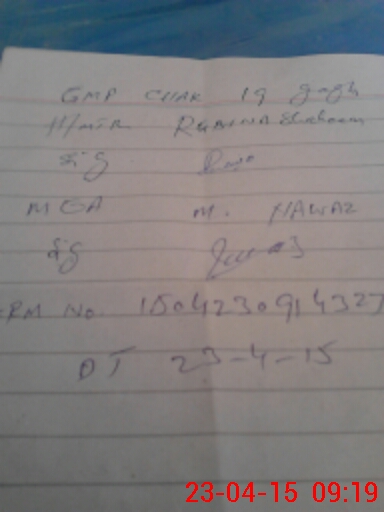 GMP CHAK 19 gagh
H/mtR RUBINA Shaheen
Sig
MEA M. NAWAZ
Sig
RM No. 1504230914327
DT 23-4-15
23-04-15 09:19